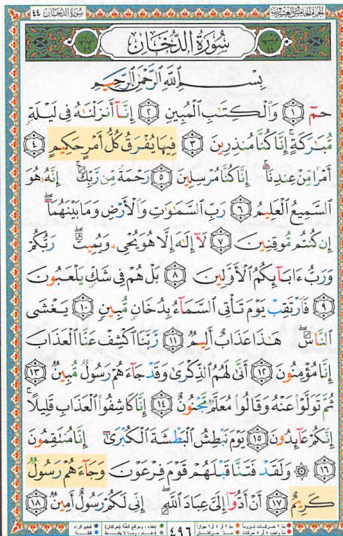 سُورَةُ الدُّخَانِ ٤٤
سُورَةُ الدُّخَانِ
بِسْمِ اللَّهِ الرَّحْمَٰنِ الرَّحِيمِ
حمٓ ١ وَالْكِتَٰبِ الْمُبِينِ ٢ إِنَّآ أَنزَلْنَٰهُ فِى لَيْلَةٍ
مُّبَٰرَكَةٍ ۚ إِنَّا كُنَّا مُنذِرِينَ ٣ فِيهَا يُفْرَقُ كُلُّ أَمْرٍ حَكِيمٍ ٤
أَمْرًا مِّنْ عِندِنَآ ۚ إِنَّا كُنَّا مُرْسِلِينَ ٥ رَحْمَةً مِّن رَّبِّكَ ۚ إِنَّهُۥ هُوَ
السَّمِيعُ الْعَلِيمُ ٦ رَبِّ السَّمَٰوَٰتِ وَالْأَرْضِ وَمَا بَيْنَهُمَآ ۖ
إِن كُنتُم مُّوقِنِينَ ٧ لَآ إِلَٰهَ إِلَّا هُوَ يُحْىِۦ وَيُمِيتُ ۖ رَبُّكُمْ
وَرَبُّ ءَابَآئِكُمُ الْأَوَّلِينَ ٨ بَلْ هُمْ فِى شَكٍّ يَلْعَبُونَ
٩ فَارْتَقِبْ يَوْمَ تَأْتِى السَّمَآءُ بِدُخَانٍ مُّبِينٍ ١٠ يَغْشَى
النَّاسَ ۖ هَٰذَا عَذَابٌ أَلِيمٌ ١١ رَّبَّنَا اكْشِفْ عَنَّا الْعَذَابَ
إِنَّا مُؤْمِنُونَ ١٢ أَنَّىٰ لَهُمُ الذِّكْرَىٰ وَقَدْ جَآءَهُمْ رَسُولٌ مُّبِينٌ ١٣
ثُمَّ تَوَلَّوْا۟ عَنْهُ وَقَالُوا۟ مُعَلَّمٌ مَّجْنُونٌ ١٤ إِنَّا كَاشِفُوا۟ الْعَذَابِ قَلِيلًا ۚ
إِنَّكُمْ عَآئِدُونَ ١٥ يَوْمَ نَبْطِشُ الْبَطْشَةَ الْكُبْرَىٰٓ إِنَّا مُنتَقِمُونَ
١٦ ۞ وَلَقَدْ فَتَنَّا قَبْلَهُمْ قَوْمَ فِرْعَوْنَ وَجَآءَهُمْ رَسُولٌ
كَرِيمٌ ١٧ أَنْ أَدُّوٓا۟ إِلَىَّ عِبَادَ اللَّهِ ۖ إِنِّى لَكُمْ رَسُولٌ أَمِينٌ ١٨
٤٩٦